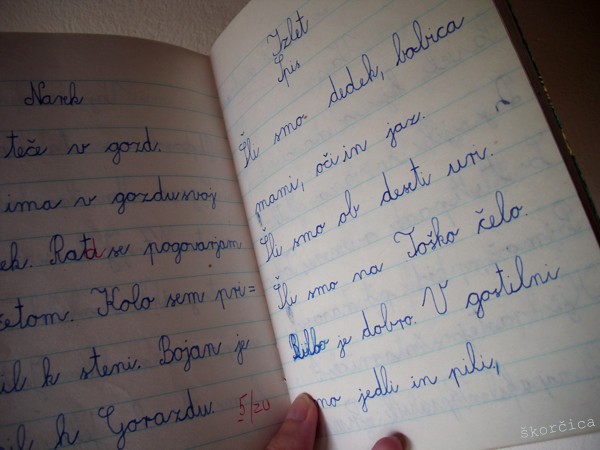 Narek
teče v gozd.
ima v gozdu svoj
ek. Rad se pogovarjam
etom. Kolo sem pri=
il k steni. Bojan je
il k Gorazdu. 5/20
Izlet
Spis
Šli smo dedek, babica
mami, oči in jaz.
Šli smo ob deseti uri.
Šli smo na Toško čelo.
Bilo je dobro. V gostilni
mo jedli in pili,
škorčica